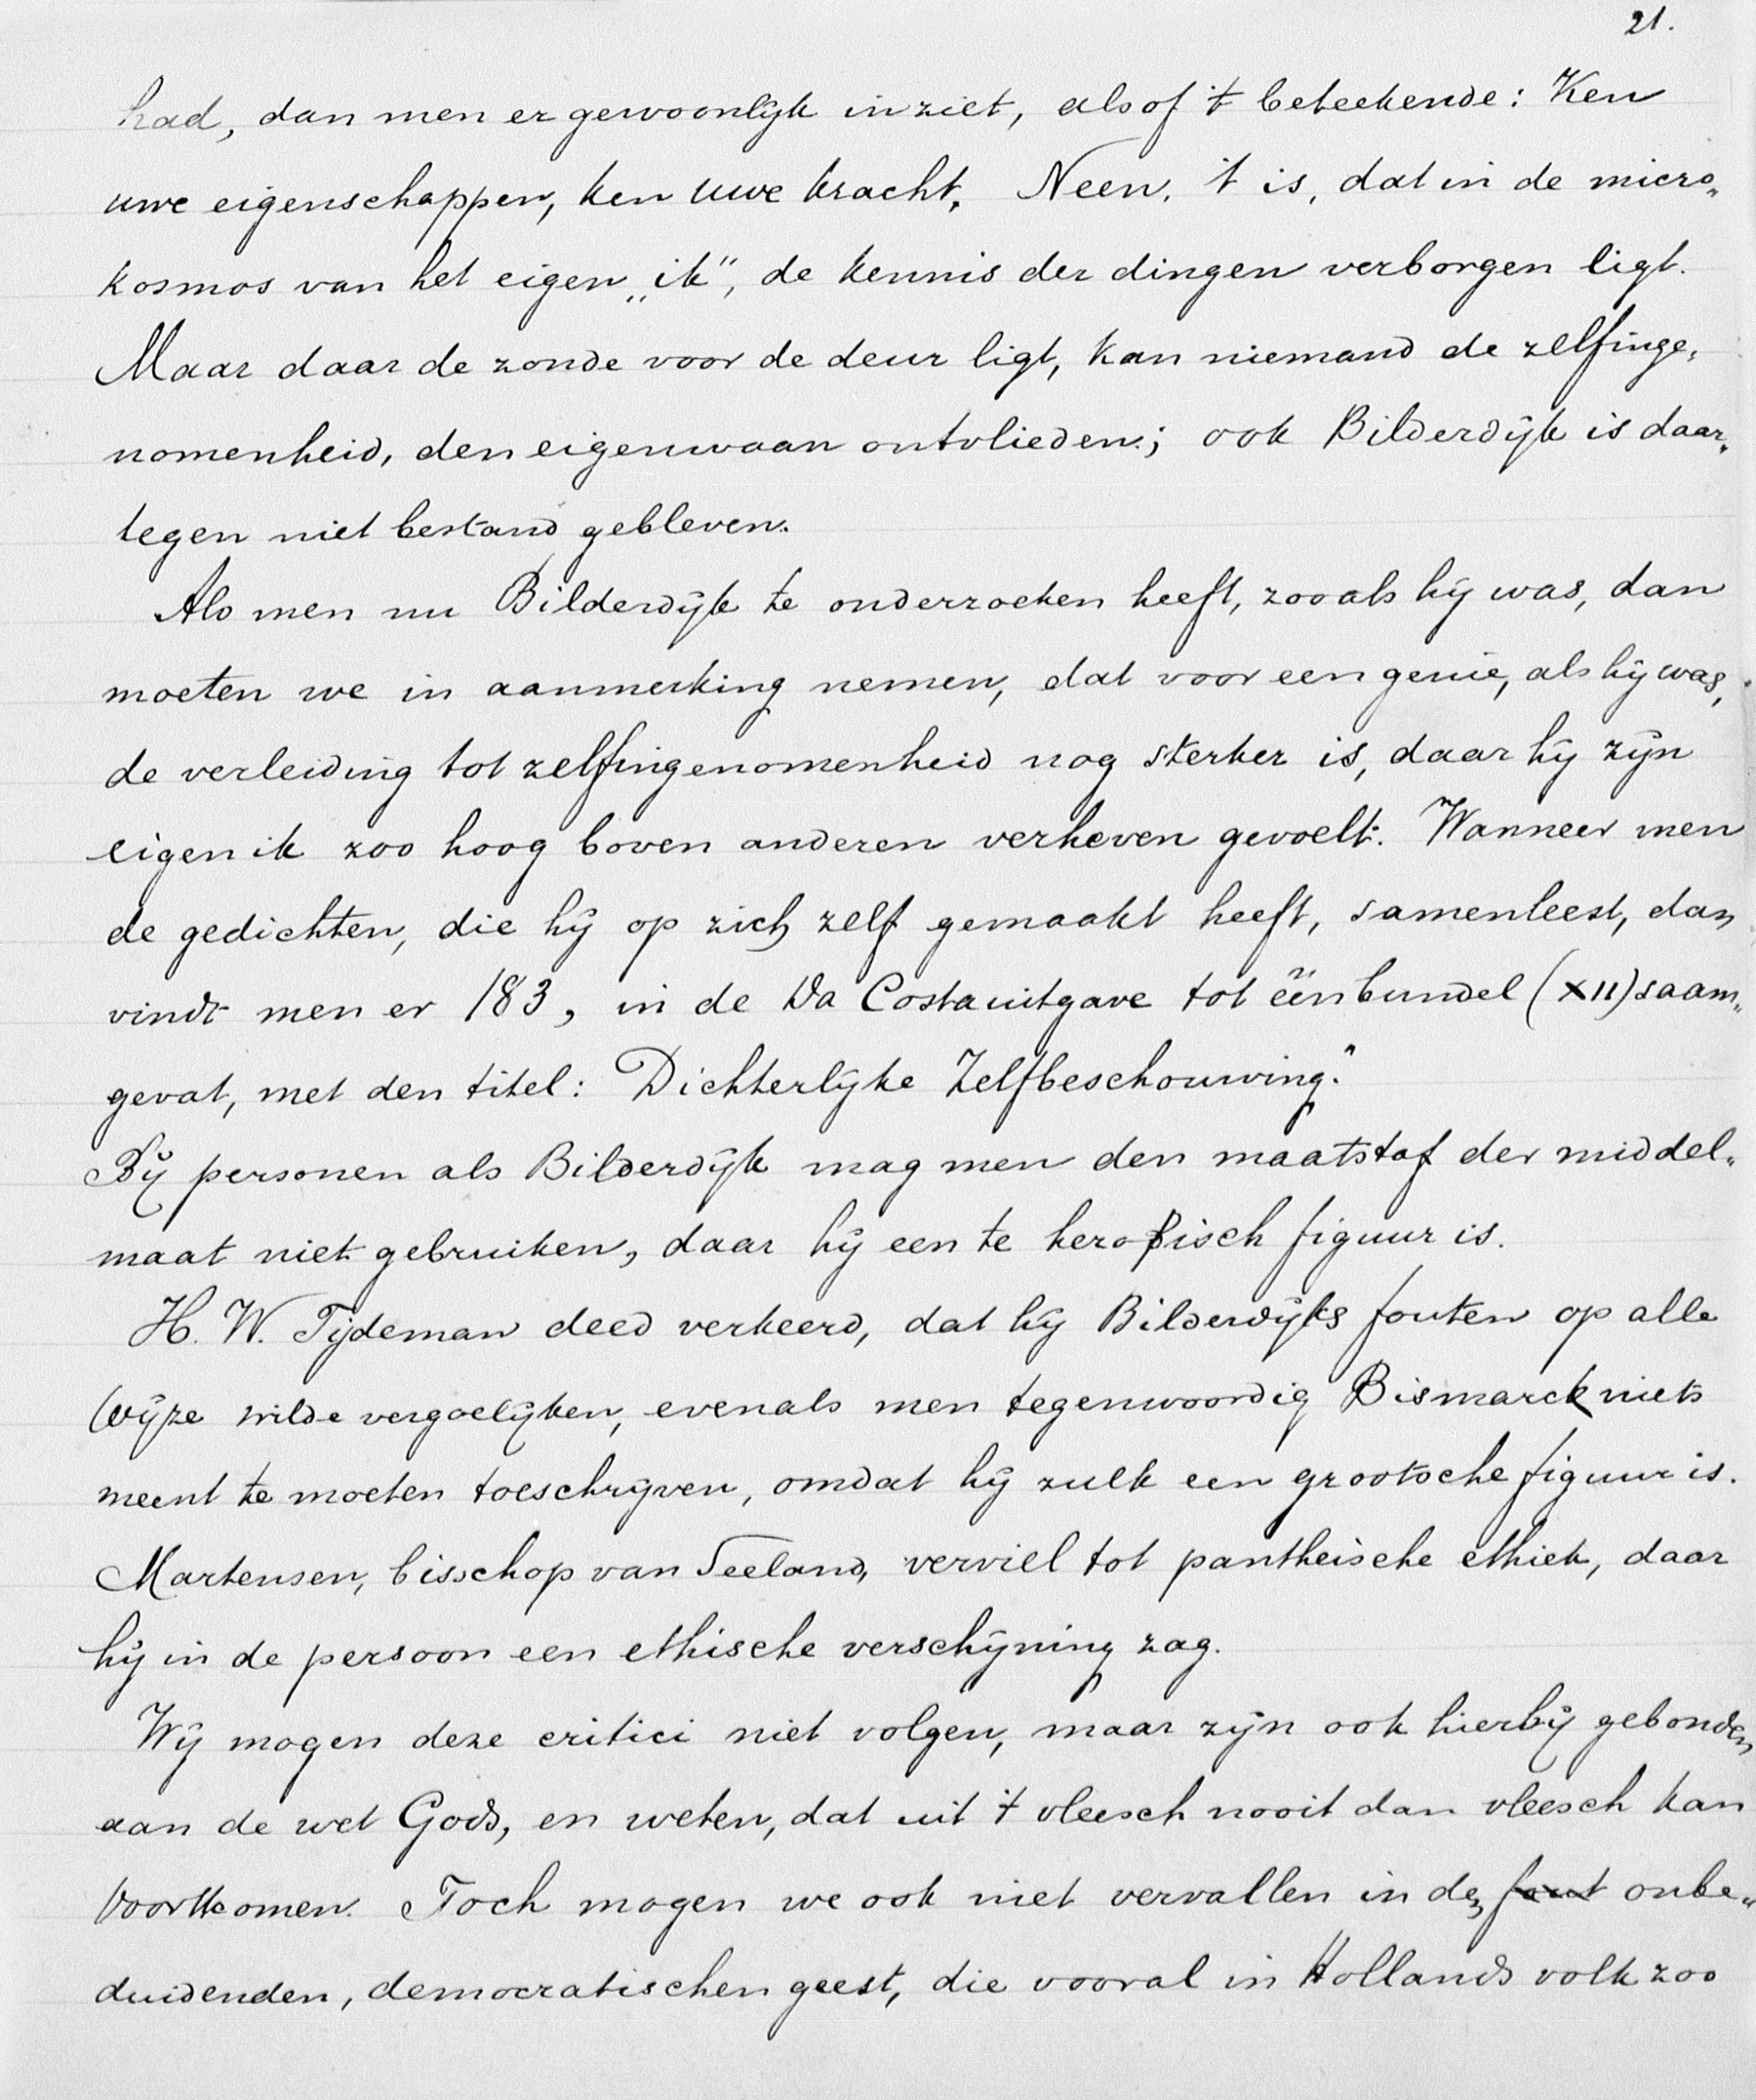 21.
had, dan men er gewoonlijk in ziet, alsof 't beteekende: Ken
uwe eigenschappen, ken uwe kracht. Neen, 't is, dat in de micro„
kosmos van het eigen „ik", de kennis der dingen verborgen ligt.
Maar daar de zonde voor de deur ligt, kan niemand de zelfinge„
nomenheid, den eigenwaan ontvlieden; ook Bilderdijk is daar„
tegen niet bestand gebleven.
Als men nu Bilderdijk te onderzoeken heeft, zooals hij was, dan
moeten we in aanmerking nemen, dat voor een genie, als hij was,
de verleiding tot zelfingenomenheid nog sterker is, daar hij zijn
eigen ik zoo hoog boven anderen verheven gevoelt. Wanneer men
de gedichten, die hij op zich zelf gemaakt heeft, samenleest, dan
vindt men er 183, in de Da Costa uitgave tot één bundel (XII) saam„
gevat, met den titel: Dichterlijke Zelfbeschouwing."
Bij personen als Bilderdijk mag men den maatstaf der middel„
maat niet gebruiken, daar hij een te heroïsch figuur is.
H. W. Tijdeman deed verkeerd, dat hij Bilderdijks fouten op alle
wijze wilde vergoelijken, evenals men tegenwoordig Bismarck niets
meent te moeten toeschrijven, omdat hij zulk een grootsche figuur is.
Martensen, bisschop van Seeland, verviel tot pantheische ethiek, daar
hij in de persoon een ethische verschijning zag.
Wij mogen deze critici niet volgen, maar zijn ook hierbij gebonden
aan de wet Gods, en weten, dat uit 't vleesch nooit dan vleesch kan
voortkomen. Toch mogen we ook niet vervallen in den fout onbe„
duidenden, democratischen geest, die vooral in Hollands volk zoo